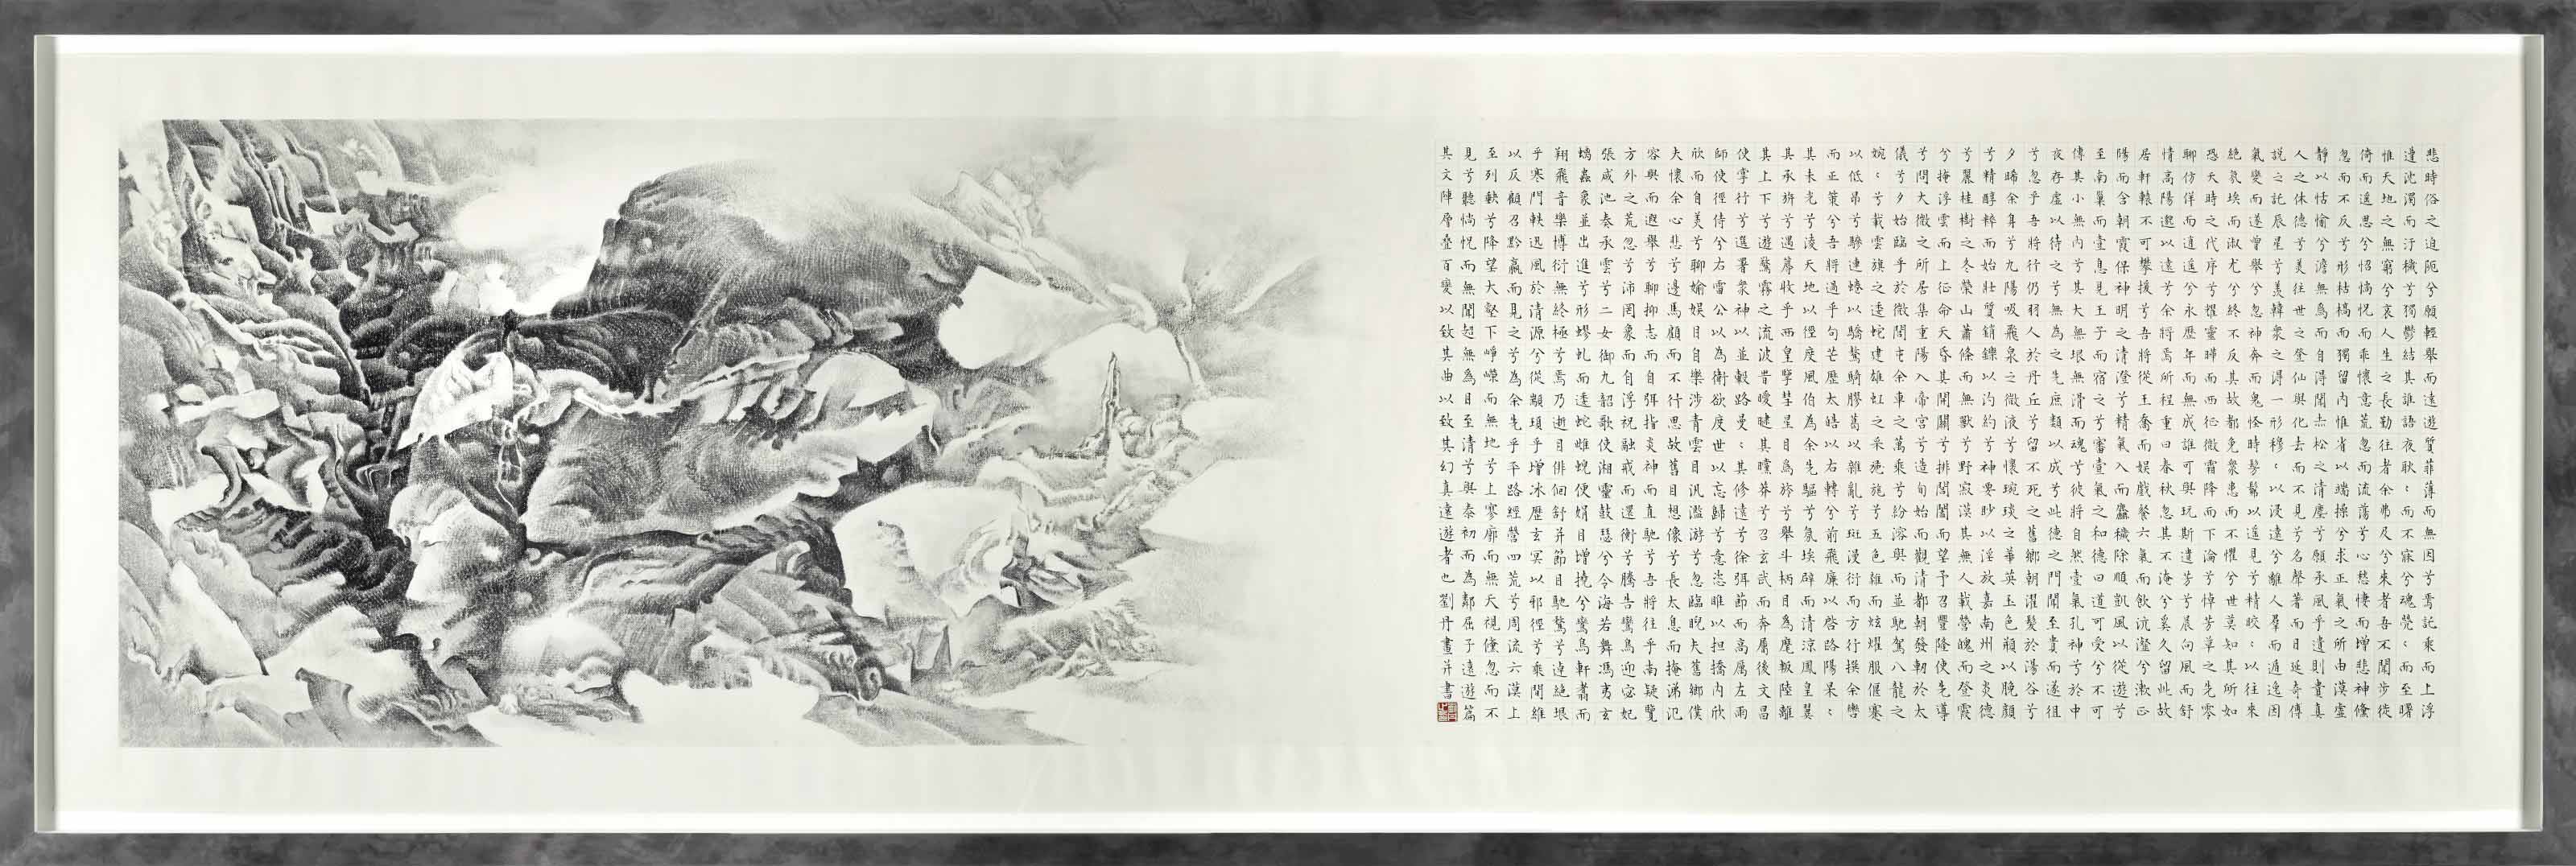 悲時俗之迫阨兮願輕舉而遠遊質菲薄而無因兮焉託乘而上浮
遭沈濁而汙穢兮獨鬱結其誰語夜耿〻而不寐兮魂煢〻而至曙
惟天地之無窮兮哀人生之長勤往者余弗及兮來者吾不聞步徙
倚而遙思兮怊惝怳而乖懷意荒忽而流蕩兮心愁悽而增悲神儵
忽而不反兮形枯槁而獨留內惟省以端操兮求正氣之所由漠虛
靜以恬愉兮澹無爲而自得聞赤松之清塵兮願承風乎遺則貴真
人之休德兮美往世之登仙與化去而不見兮名聲著而日延奇傅
說之託辰星兮羨韓衆之得一形穆〻以浸遠兮離人羣而遁逸因
氣變而遂曾舉兮忽神奔而鬼怪時髣髴以遙見兮精皎〻以往來
絕氛埃而淑尤兮終不反其故都免衆患而不懼兮世莫知其所如
恐天時之代序兮耀靈曄而西征微霜降而下淪兮悼芳草之先零
聊仿佯而逍遙兮永歷年而無成誰可與玩斯遺芳兮晨向風而舒
情高陽邈以遠兮余將焉所程重曰春秋忽其不淹兮奚久留此故
居軒轅不可攀援兮吾將從王喬而娛戲餐六氣而飲沆瀣兮漱正
陽而含朝霞保神明之清澄兮精氣入而麤穢除順凱風以從遊兮
至南巢而壹息見王子而宿之兮審壹氣之和德曰道可受兮不可
傳其小無內兮其大無垠無滑而魂兮彼將自然壹氣孔神兮於中
夜存虛以待之兮無為之先庶類以成兮此德之門聞至貴而遂徂
兮忽乎吾將行仍羽人於丹丘兮留不死之舊鄉朝濯髮於湯谷兮
夕晞余身兮九陽吸飛泉之微液兮懷琬琰之華英玉色頩以脕顏
兮精醇粹而始壯質銷鑠以汋約兮神要眇以淫放嘉南州之炎德
兮麗桂樹之冬榮山蕭條而無獸兮野寂漠其無人載營魄而登霞
兮掩浮雲而上征命天閽其開關兮排閶闔而望予召豐隆使先導
兮問大微之所居集重陽入帝宮兮造旬始而觀清都朝發軔於太
儀兮夕始臨乎於微閭屯余車之萬乘兮紛溶與而並馳駕八龍之
婉〻兮載雲旗之逶蛇建雄虹之采旄施兮五色雜而炫耀服偃蹇
以低昂兮驂連蜷以驕驁騎膠葛以雜亂兮斑漫衍而方行撰余轡
而正策兮吾將過乎句芒歷太皓以右轉兮前飛廉以啓路陽杲〻
其未光兮淩天地以徑度風伯為余先驅兮氛埃辟而清涼鳳皇翼
其承旂兮遇蓐收乎西皇擥彗星目爲旍兮舉斗柄目爲麾叛陸離
其上下兮遊驚霧之流波昔曖曃其曭莽兮召玄武而奔屬後文昌
使掌行兮選署衆神以並轂路曼〻其修遠兮徐弭節而高厲左雨
師使徑侍兮右雷公以為衛欲度世以忘歸兮意恣睢以担撟內欣
欣而自美兮聊媮娛目自樂涉青雲目汎濫游兮忽臨睨夫舊鄉僕
夫懷余心悲兮邊馬顧而不行思故舊目想像兮長太息而掩涕氾
容與而遐舉兮聊抑志而自弭指炎神而直馳兮吾將往乎南疑覽
方外之荒忽兮沛罔象而自浮祝融戒而還衡兮騰告鸞鳥迎宓妃
張咸池奏承雲兮二女御九韶歌使湘靈鼓瑟兮令海若舞馮夷玄
螭蟲象並出進兮形蟉虬而逶蛇雌蜺便娟目增撓兮鸞鳥軒翥而
翔飛音樂博衍無終極兮焉乃逝目徘徊舒并節目馳騖兮逴絕垠
乎寒門軼迅風於清源兮從顓頊乎增冰歷玄冥以邪徑兮乘閒維
以反顧召黔嬴而見之兮為余先乎平路經營四荒兮周流六漠上
至列缺兮降望大壑下崢嶸而無地兮上寥廓而無天視儵忽而不
見兮聽惝怳而無聞超無為目至清兮與泰初而為鄰屈子遠遊篇
其文陣層疊百變以致其曲以致其幻真遠遊者也劉丹畫并書